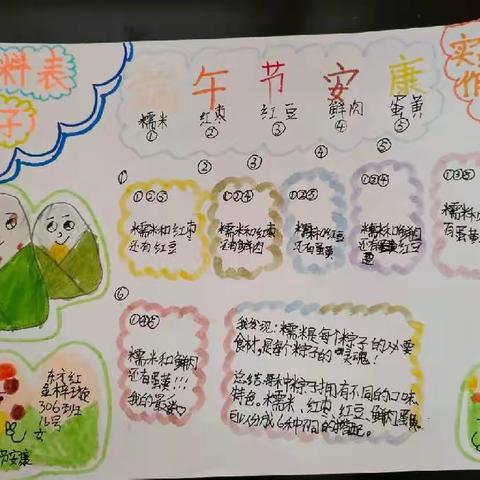 料表
子
端午节安康
实
作
糯米 红枣 红豆 鲜肉 蛋黄
① ② ③ ④ ⑤
① ② ③ ④ ⑤
①②③
糯米和红枣
还有红豆
①②④
糯米和红枣
还有鲜肉
糯米的红豆
还有蛋黄
糯米和鲜肉
还有红豆
①③⑤
糯米
有蛋黄
⑥
①④⑤
糯米和鲜肉
还有蛋黄!!!
我的最爱
我发现:糯米是每个粽子的必要
食材,是每个粽子的灵魂!
总结:每种粽子拥有不同的口味
特色。糯米、红枣、红豆、鲜肉、蛋黄
可以分成6种不同的搭配。
东才红
306班
16号
女
节安康